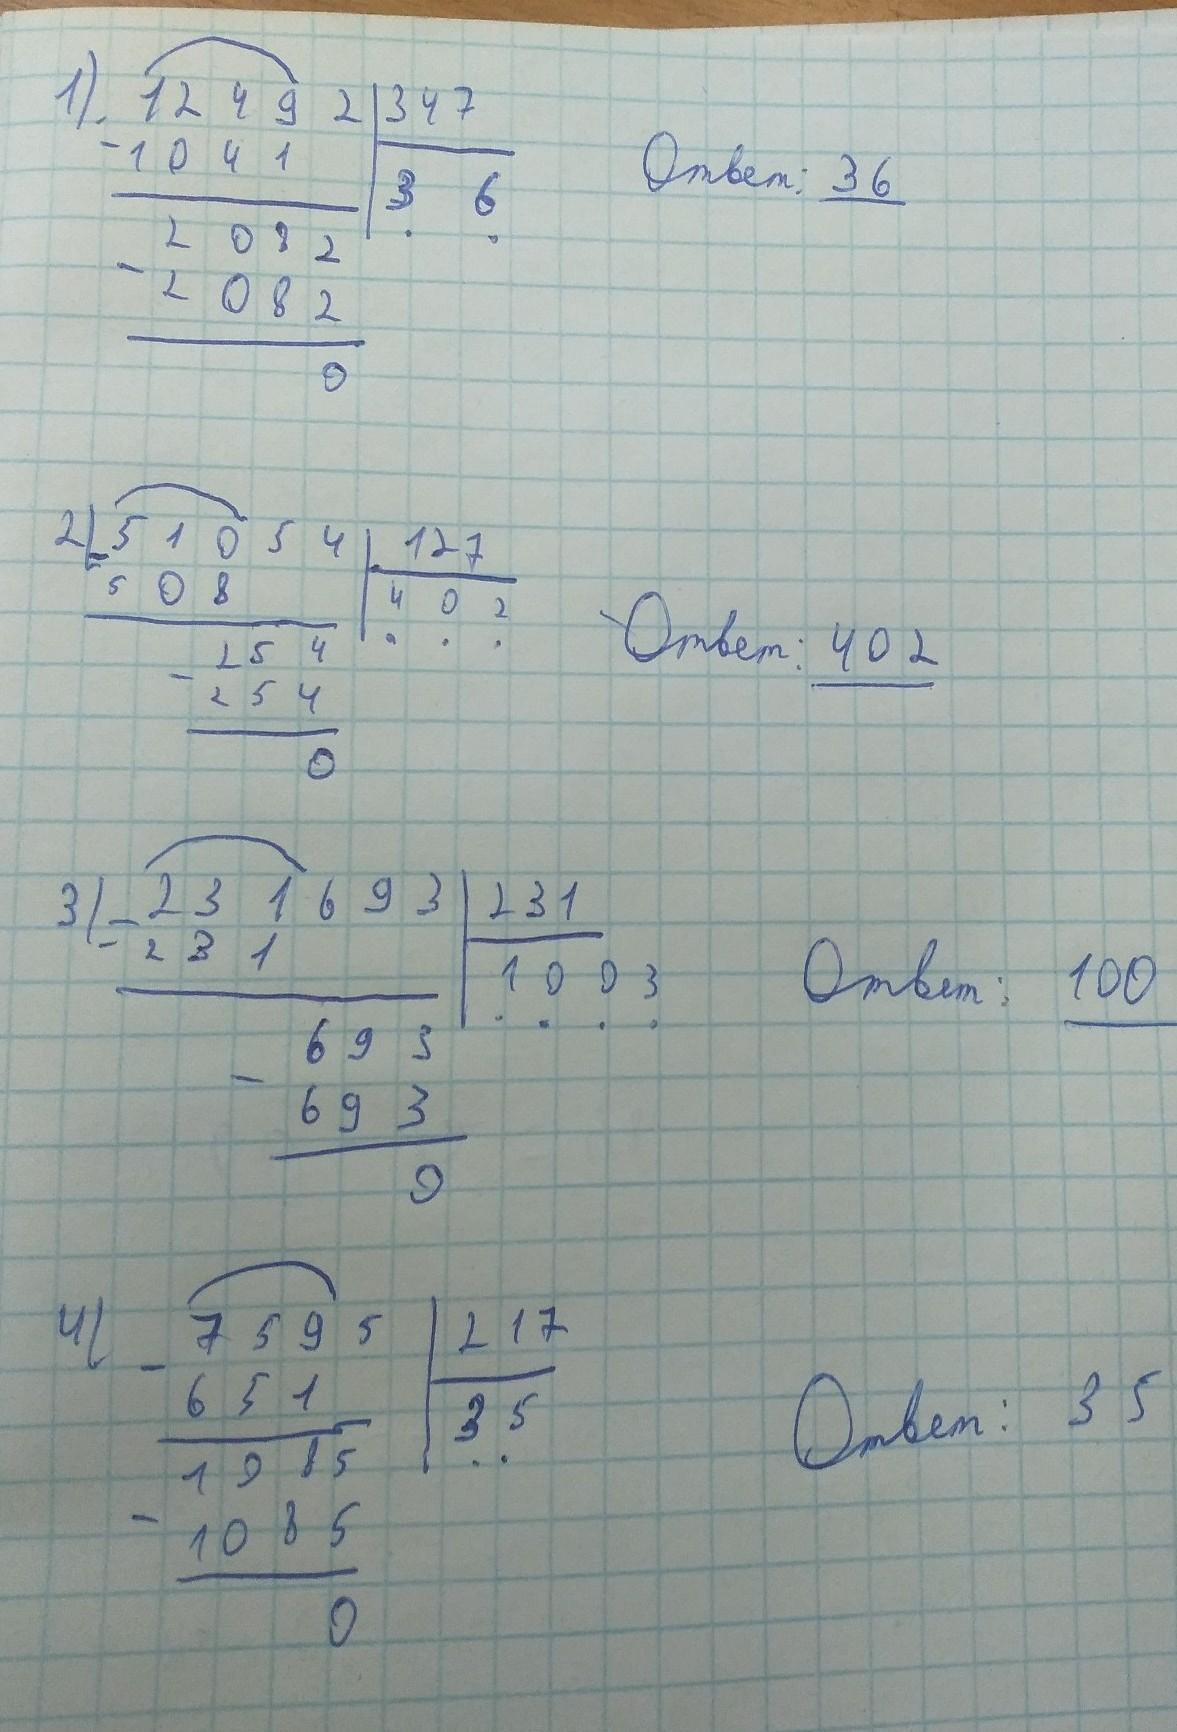 1) 12492 | 347
- 1041 | 36 Ответ: 36
2082
- 2082
0
2) - 51054 | 127
508 | 402 Ответ: 402
- 254
254
0
3) - 231693 | 231
- 231 | 1003 Ответ: 100
693
- 693
0
4) - 7595 | 217
651 | 35 Ответ: 35
1085
- 1085
0